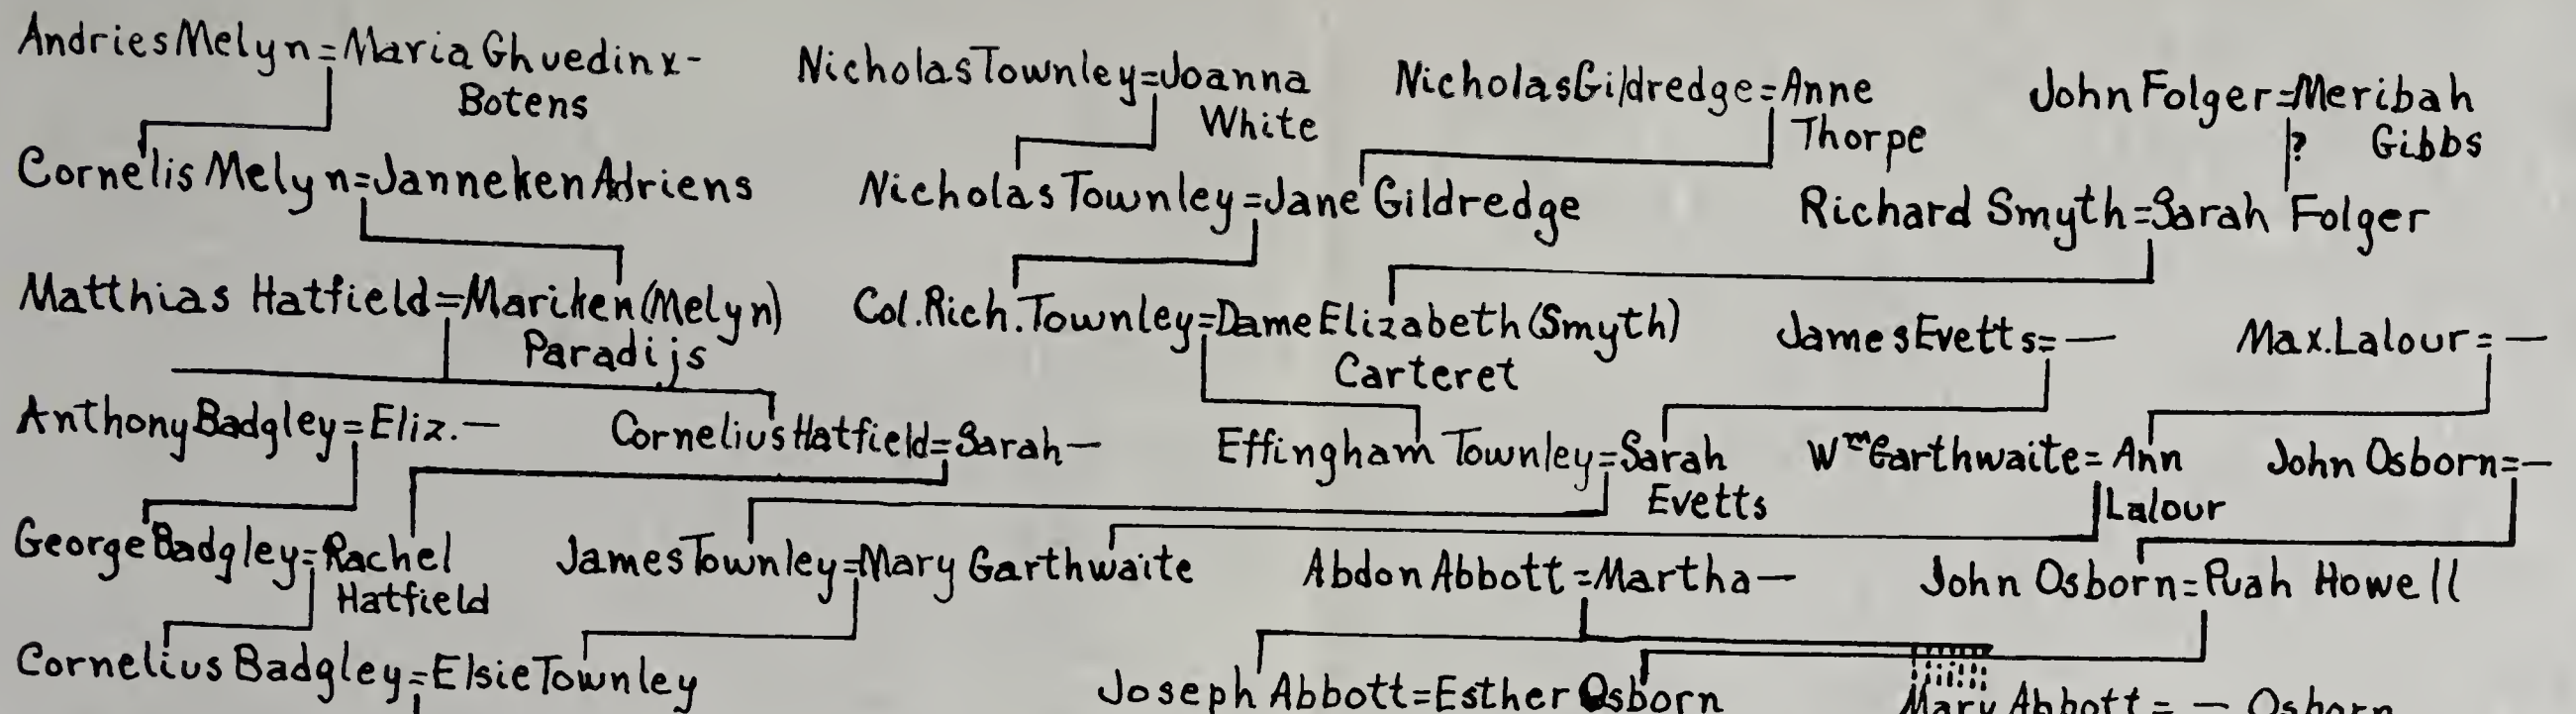 Andries Melyn=Maria Ghuedinx-
Botens
Nicholas Townley=Joanna
White
Nicholas Gildredge=Anne
Thorpe
John Folger=Meribah
? Gibbs
Cornelis Melyn=Janneken Adriens
Nicholas Townley=Jane Gildredge
Richard Smyth=Sarah Folger
Matthias Hatfield=Mariken (Melyn)
Paradijs
Col. Rich. Townley=Dame Elizabeth (Smyth)
Carteret
James Evetts=—
Max. Lalour=—
Anthony Badgley=Eliz.—
Cornelius Hatfield=Sarah—
Effingham Townley=Sarah
Evetts
Wm Garthwaite=Ann
Lalour
John Osborn=—
George Badgley=Rachel
Hatfield
James Townley=Mary Garthwaite
Abdon Abbott=Martha—
John Osborn=Puah Howell
Cornelius Badgley=Elsie Townley
Joseph Abbott=Esther Osborn
Mary Abbott=— Osborn